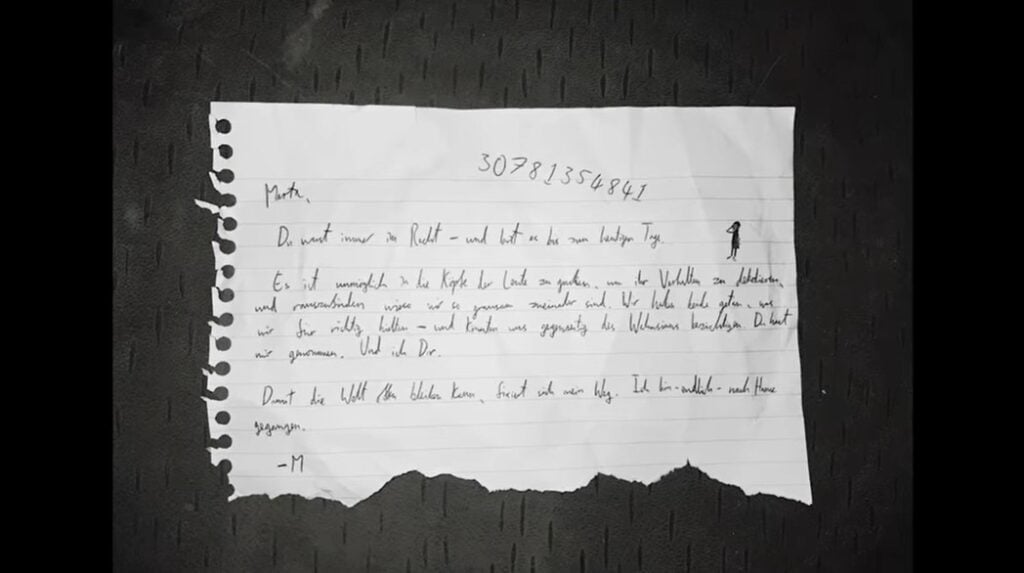 30781354841
Marta,
Du warst immer im Recht – und bist es bis zum heutigen Tage.
Es ist unmöglich in die Köpfe der Leute zu gucken, um ihr Verhalten zu
und rauszufinden wieso wir so grausam zueinander sind. Wir haben beide getan, was
wir für richtig halten – und könnten uns gegenseitig des Wahnsinns bezichtigen. Du hast
mir genommen. Und ich Dir.
Damit die Welt offen bleiben kann, mein Weg. Ich bin – endlich – nach Hause
gegangen.
–M